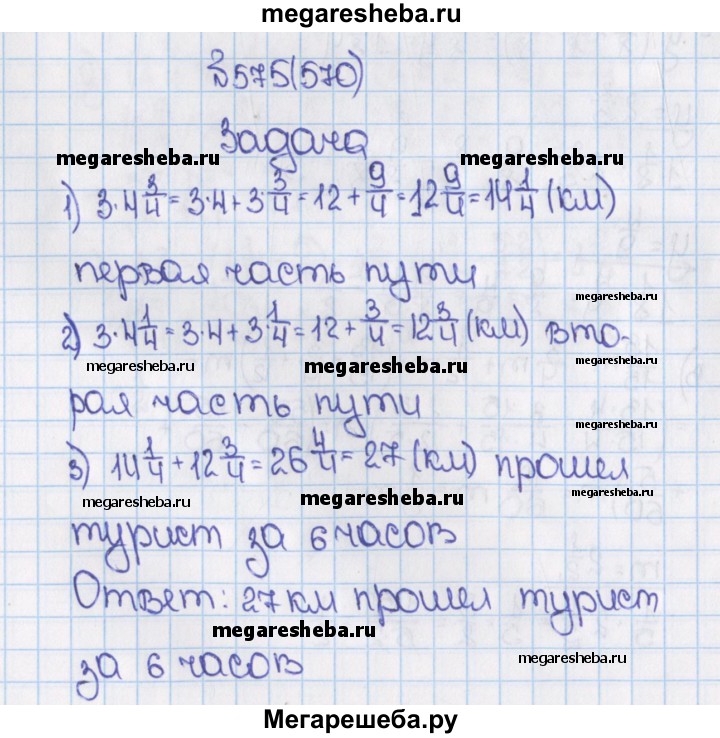 megaresheba.ru
№575(570)
Задача
megaresheba.ru megaresheba.ru
1) 3·4 3/4 = 3·4 + 3·3/4 = 12 + 9/4 = 12 9/4 = 14 1/4 (км)
первая часть пути
megaresheba.ru
2) 3·4 1/4 = 3·4 + 3·1/4 = 12 + 3/4 = 12 3/4 (км) вто-
megaresheba.ru megaresheba.ru megaresheba.ru
рая часть пути
3) 14 1/4 + 12 3/4 = 26 4/4 = 27 (км) прошел
megaresheba.ru megaresheba.ru megaresheba.ru
турист за 6 часов
Ответ: 27 км прошел турист
megaresheba.ru
за 6 часов
megaresheba.ru
Мегарешеба.ру